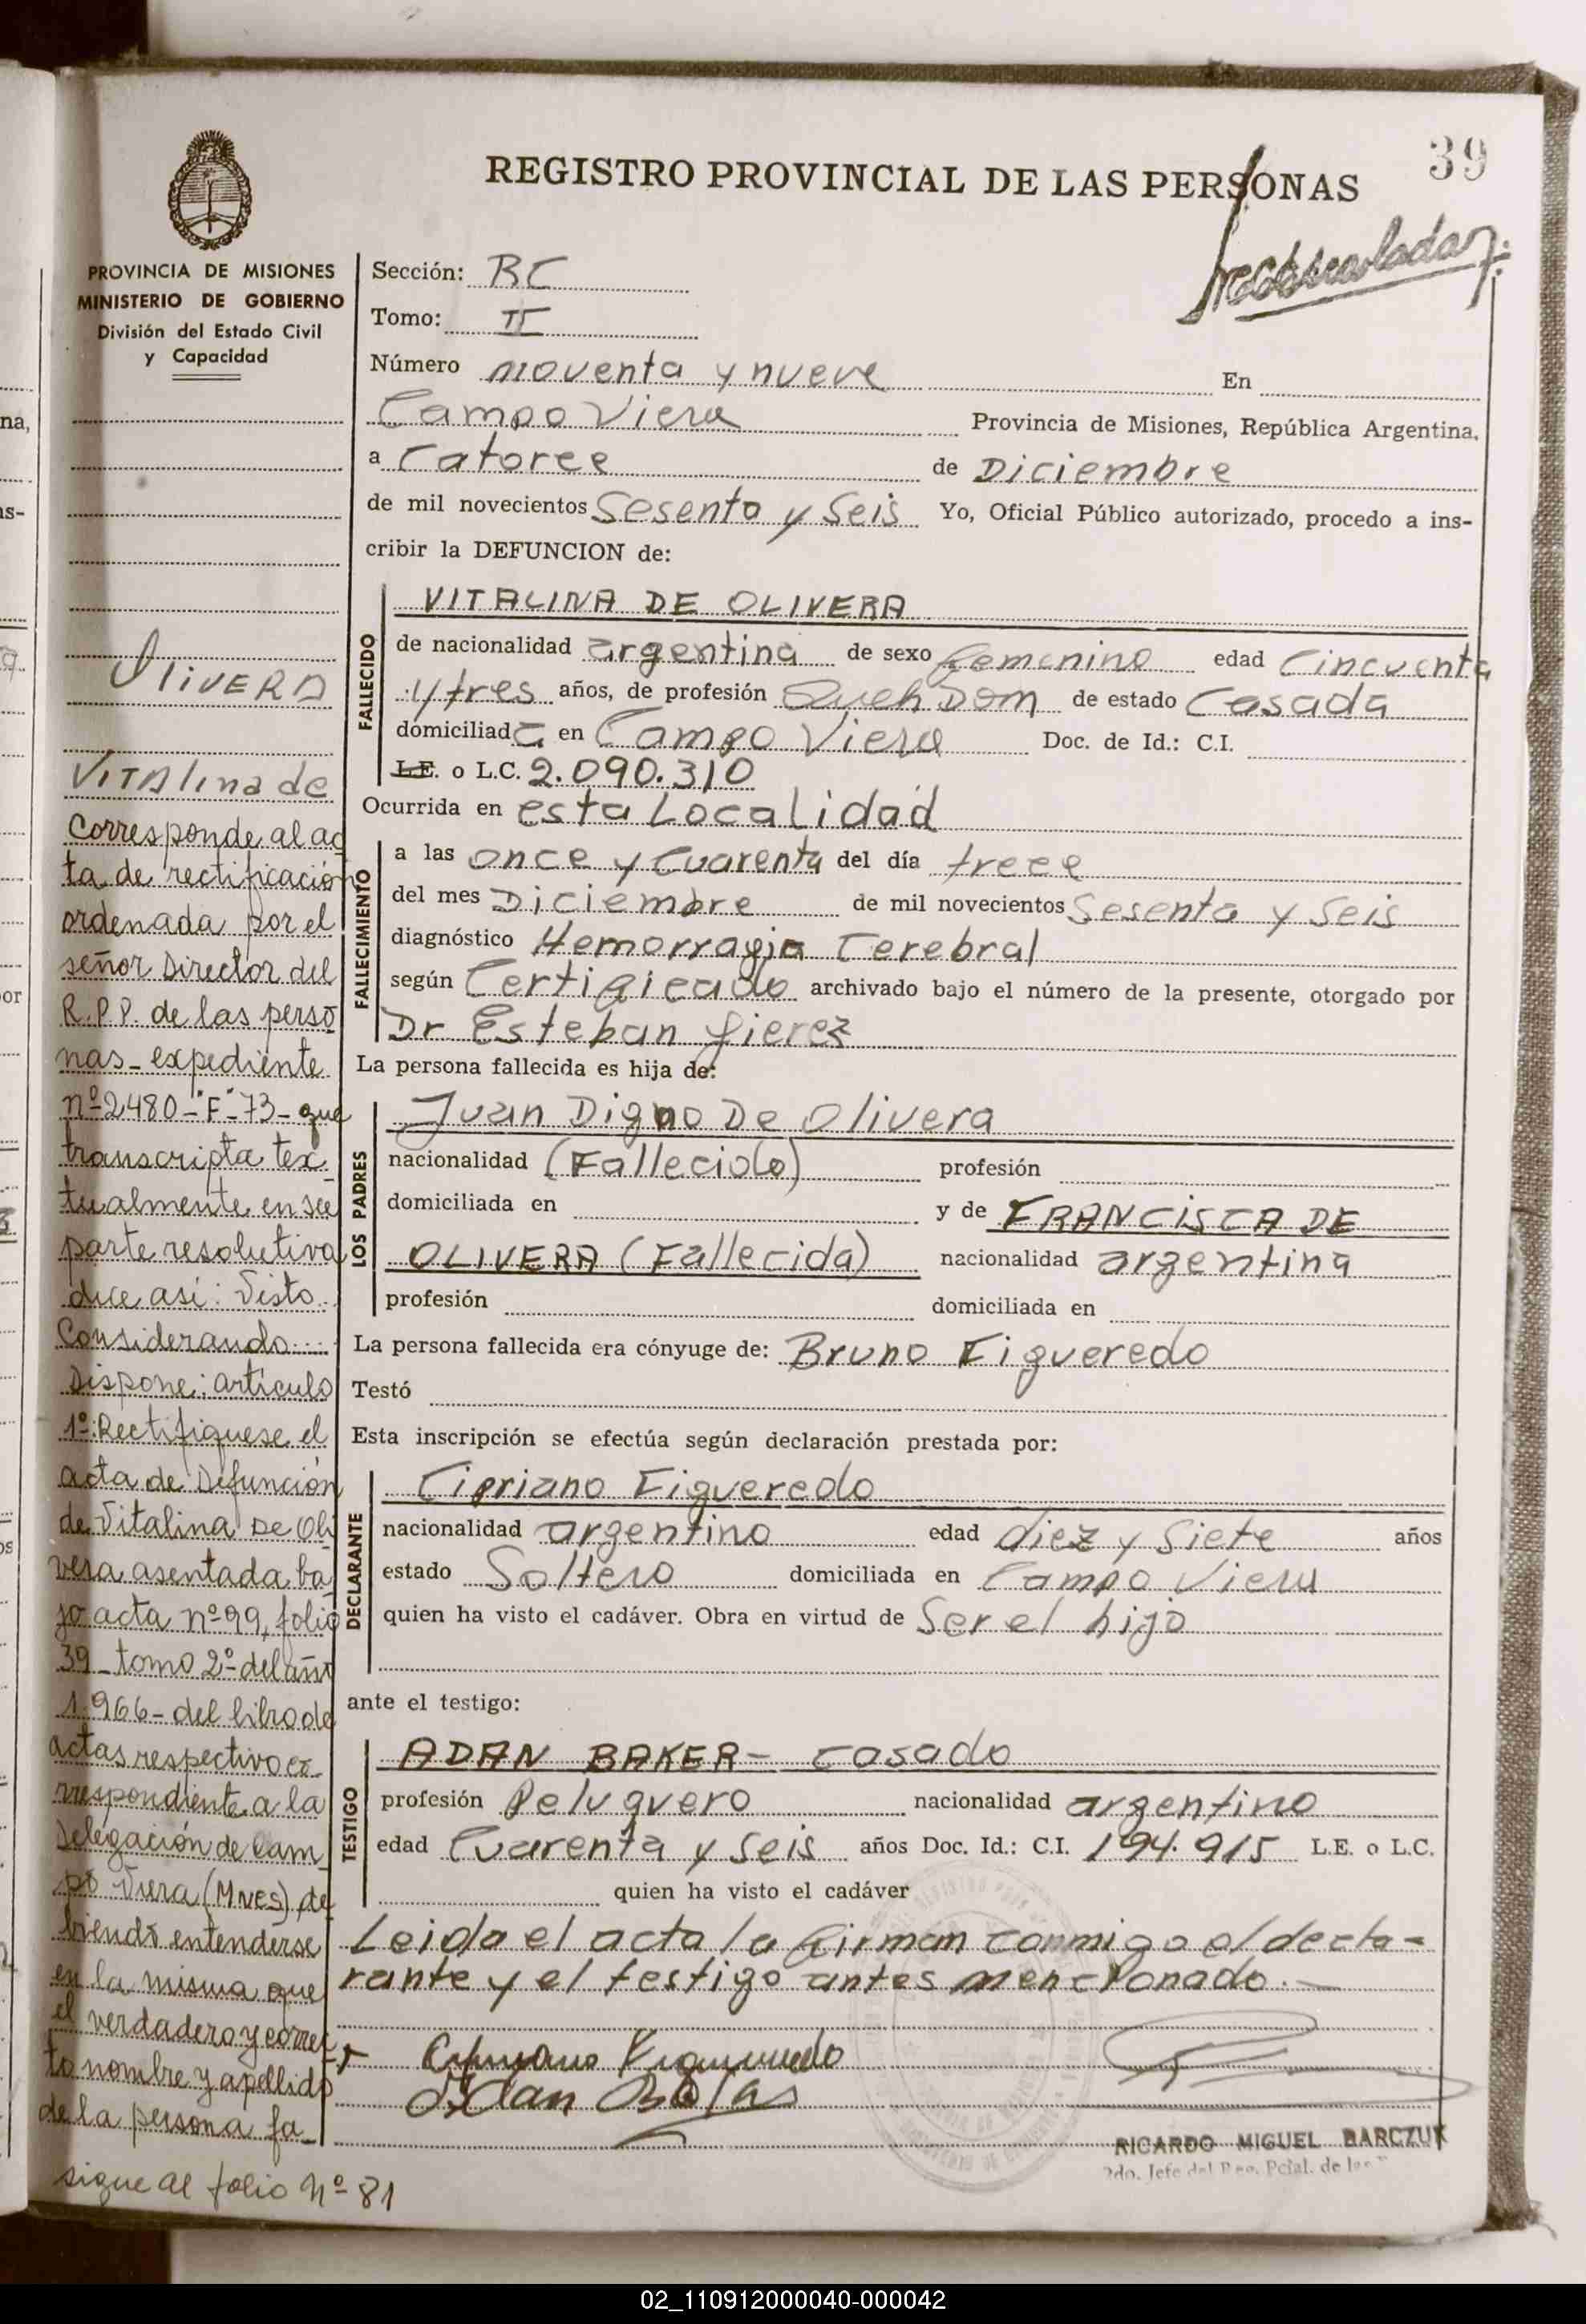 39
REGISTRO PROVINCIAL DE LAS PERSONAS
PROVINCIA DE MISIONES
MINISTERIO DE GOBIERNO
División del Estado Civil
y Capacidad
Sección: BC
Tomo: II
Número noventa y nueve En
Campo Viera Provincia de Misiones, República Argentina.
a Catorce de Diciembre
de mil novecientos Sesenta y Seis Yo, Oficial Público autorizado, procedo a ins-
cribir la DEFUNCION de:
FALLECIDO
VITALINA DE OLIVERA
de nacionalidad argentina de sexo femenino edad Cincuenta
y tres años, de profesión Queh Dom de estado Casada
domiciliada en Campo Viera Doc. de Id.: C.I.
L.E. o L.C. 2.090.310
Ocurrida en esta Localidad
FALLECIMIENTO
a las once y Cuarenta del día trece
del mes Diciembre de mil novecientos Sesenta y Seis
diagnóstico Hemorragia Cerebral
según Certificado archivado bajo el número de la presente, otorgado por
Dr Esteban Gierez
La persona fallecida es hija de:
LOS PADRES
Juan Digno De Olivera
nacionalidad (Fallecido) profesión
domiciliada en y de FRANCISCA DE
OLIVERA (Fallecida) nacionalidad argentina
profesión domiciliada en
La persona fallecida era cónyuge de: Bruno Figueredo
Testó
Esta inscripción se efectúa según declaración prestada por:
DECLARANTE
Cipriano Figueredo
nacionalidad argentino edad diez y Siete años
estado Soltero domiciliada en Campo Viera
quien ha visto el cadáver. Obra en virtud de Ser el hijo
ante el testigo:
TESTIGO
ADAN BAKER- casado
profesión Peluquero nacionalidad argentino
edad Cuarenta y Seis años Doc. Id.: C.I. 194.915 L.E. o L.C.
quien ha visto el cadáver
Leida el acta la firman conmigo el decla-
rante y el testigo antes mencionado.-
Cipriano Figueredo
Adan
RICARDO MIGUEL BARCZUK
2do. Jefe del Reg. Pcial. de las
OliVERA
VITAlina de
Corresponde al ac
ta de rectificación
ordenada por el
señor Director del
R.P.P. de las perso
nas- expediente
nº 2480-"F"-73- que
transcripta tex
tualmente en su
parte resolutiva
dice asi: Visto..
Considerando....
Dispone: articulo
1º: Rectifiquese el
acta de Defunción
de Vitalina De Oli
vera asentada ba
jo acta nº 99, folio
39- tomo 2º- del año
1.966- del libro de
actas respectivo co
rrespondiente a la
Delegación de Cam
po Viera (Mnes) de
biendo entenderse
en la misma que
el verdadero y correc
to nombre y apellido
de la persona fa-
sigue al folio Nº 81
02_110912000040-000042